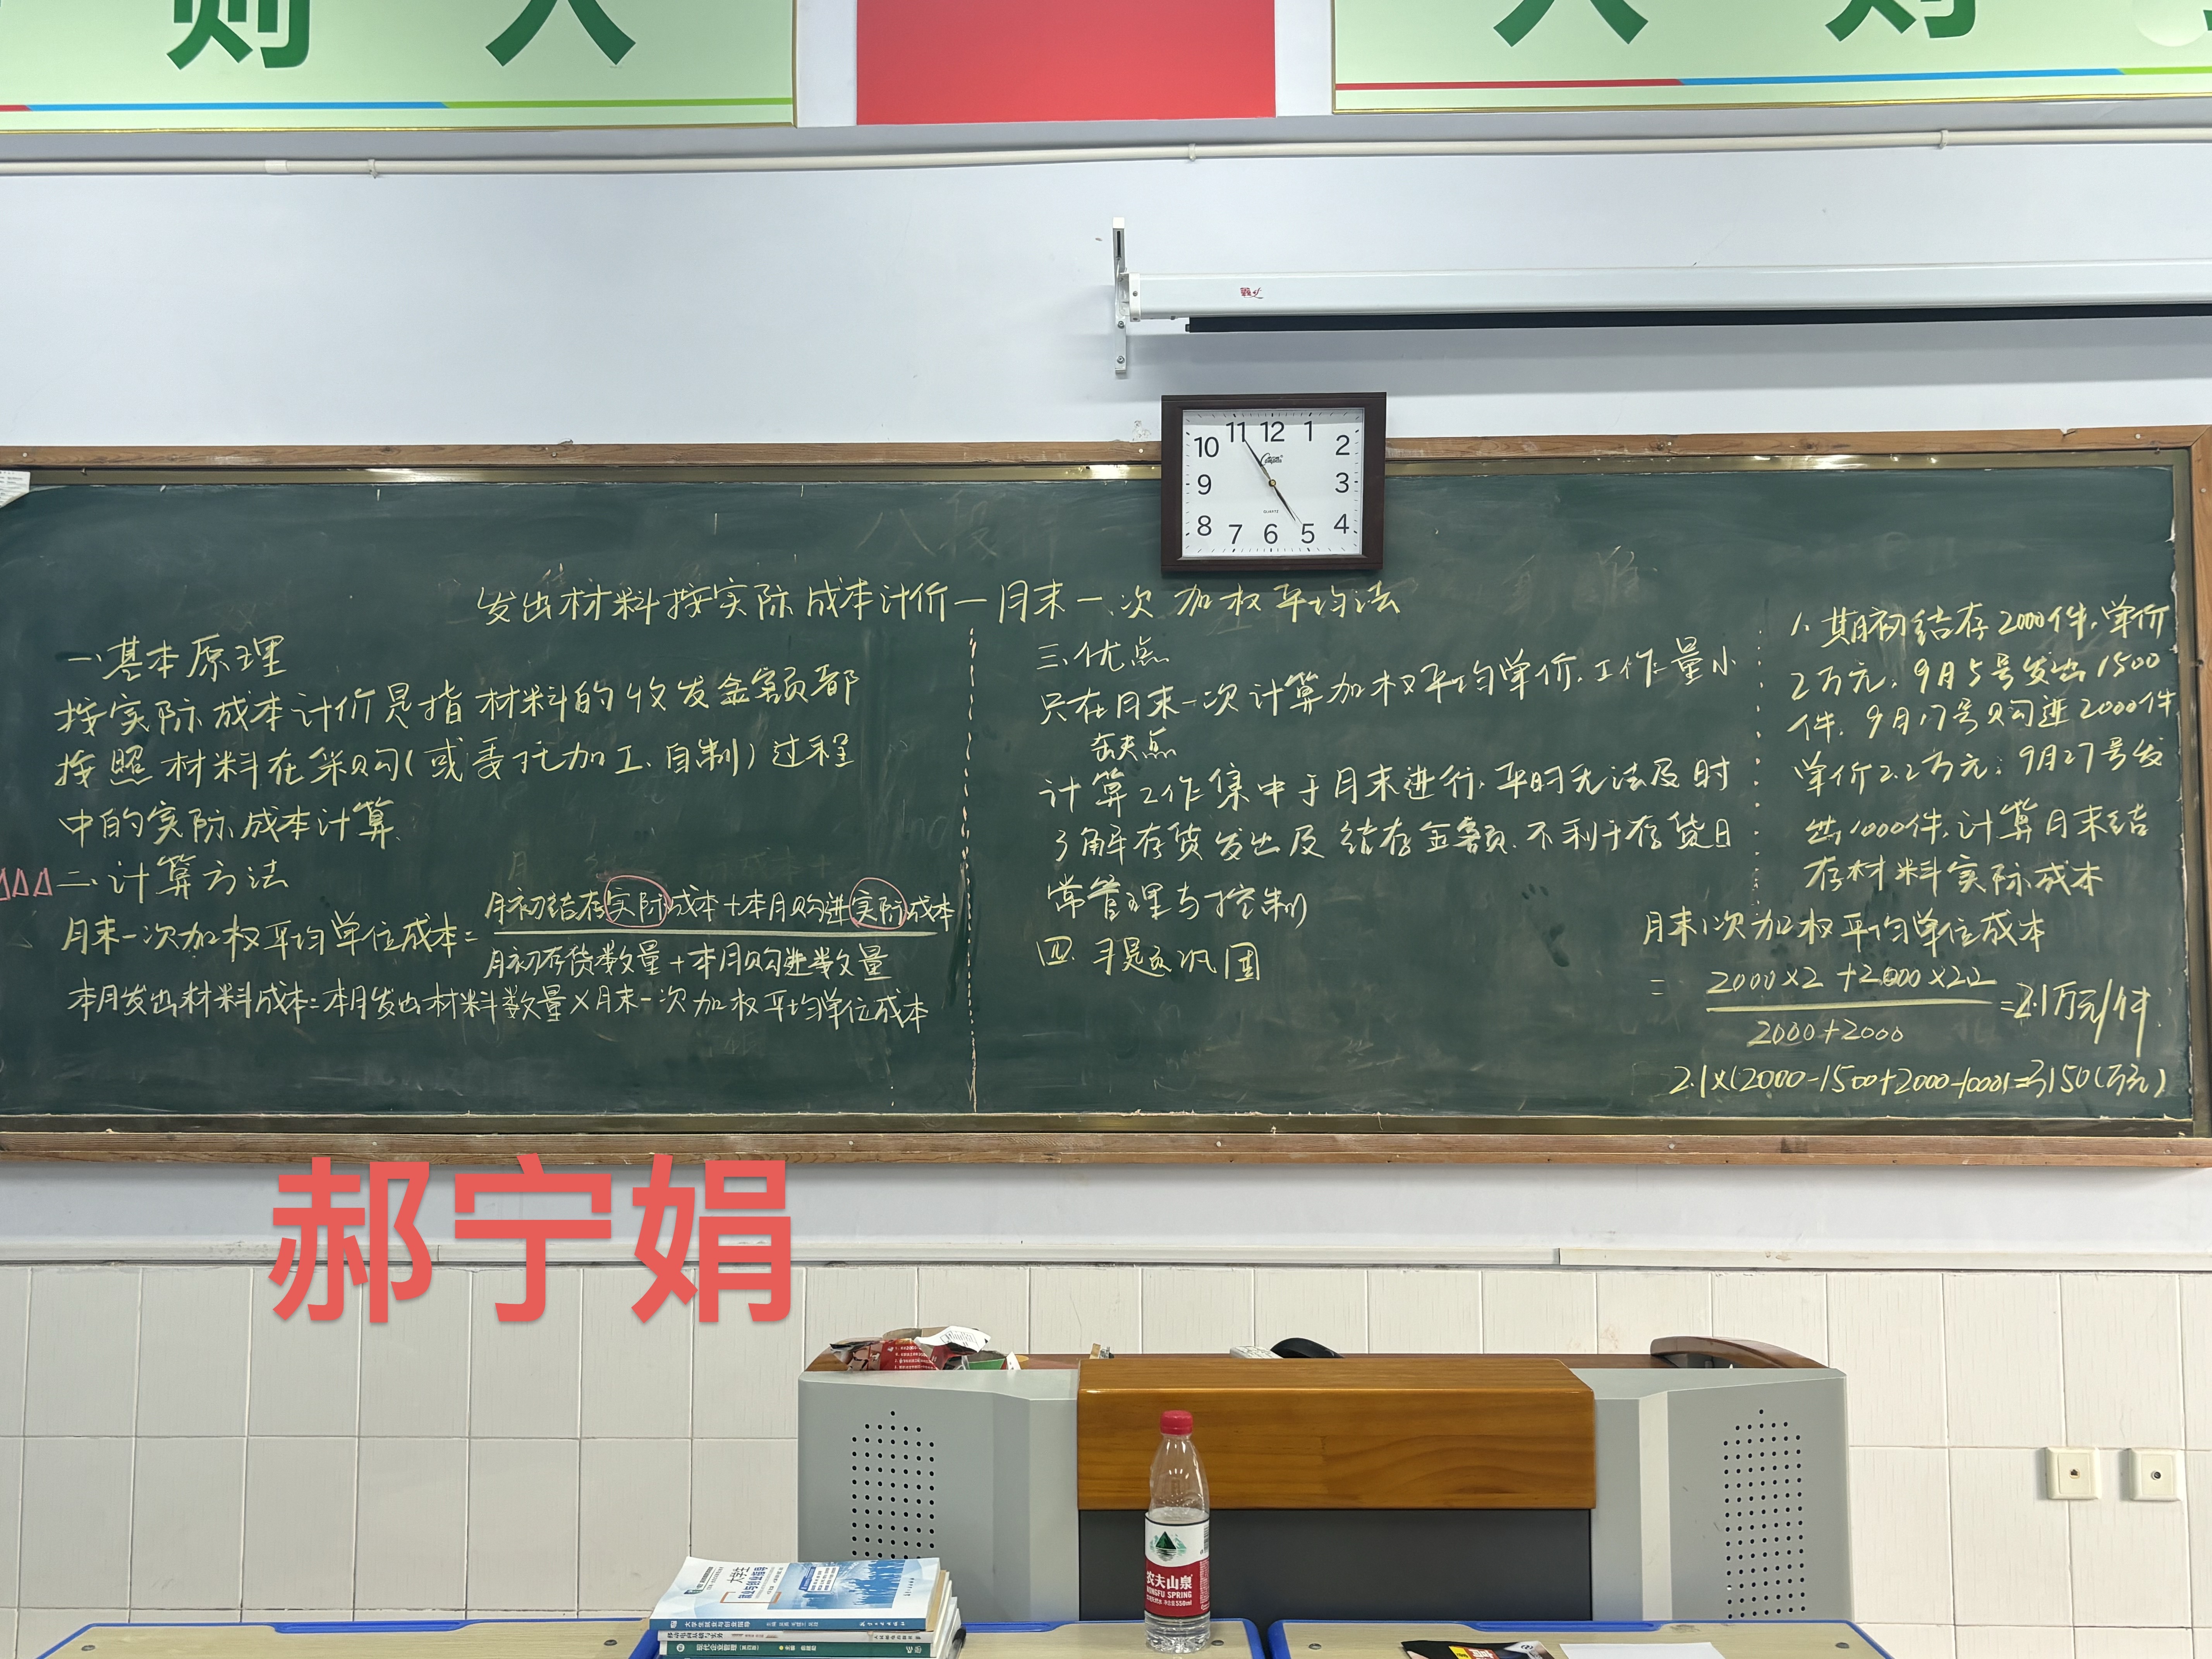 则 人
人 则
12 1 2 3 4 5 6 7 8 9 10 11
QUARTZ
发出材料按实际成本计价一月末一次加权平均法
一、基本原理
按实际成本计价是指材料的收发金额都
按照材料在采购(或委托加工、自制)过程
中的实际成本计算.
二、计算方法
月末一次加权平均单位成本=月初结存实际成本+本月购进实际成本
月初存货数量+本月购进数量
本月发出材料成本=本月发出材料数量×月末一次加权平均单位成本
三、优点
只在月末一次计算加权平均单价.工作量小
缺点
计算工作集中于月末进行.平时无法及时
了解存货发出及结存金额.不利于存货日
常管理与控制
四.习题巩固
1、期初结存2000件.单价
2万元.9月5号发出1500
件.9月17号购进2000件
单价2.2万元;9月27号发
出1000件.计算月末结
存材料实际成本
月末1次加权平均单位成本
=2000×2+2000×2.2
2000+2000
=2.1万元/件.
2.1×(2000-1500+2000-1000)=3150(万元)
郝宁娟
农夫山泉
NONGFU SPRING
550ml
大学生
就业与创业指导
大学生就业与创业指导
现代企业管理